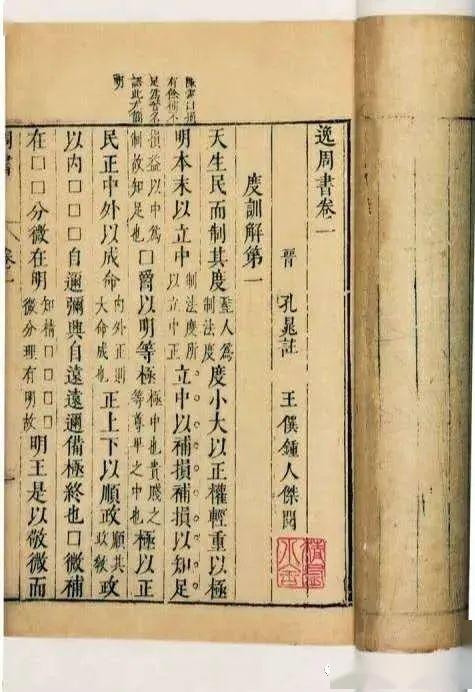 逸周書卷一
晉 孔晁註 王僕鍾人傑閱
度訓解第一
天生民而制其度聖人爲制法度度小大以正權輕重以極
明本末以立中制法度所以立中正立中以補損補損以知足
損益以中爲制故知足也囗爵以明等極極中也貴賤之等尊卑之中也極以正
民正中外以成命内外正則大命成也正上下以順政順其政教政
以内囗囗自邇彌興自遠遠邇備極終也囗微補
在囗囗分微在明知精囗囗囗囗微分理有明故明王是以敬微而
曰損
有餘補不
足
語此尤簡
明
周書 卷一